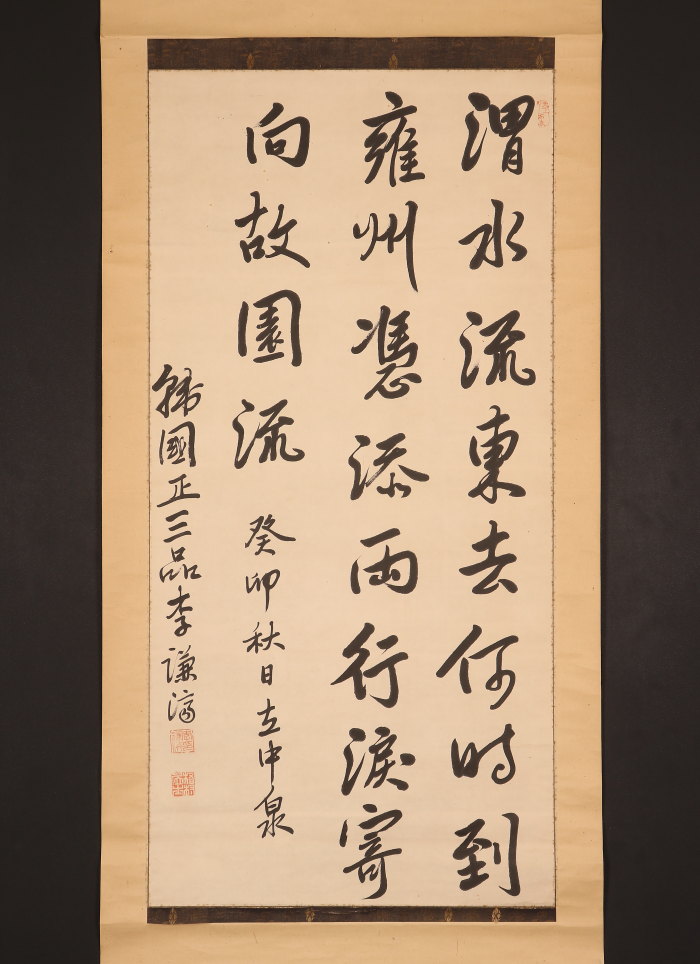 渭水流東去何時到
雍州憑添兩行淚寄
向故園流 癸卯秋日立中泉
韓國正三品李謙濟